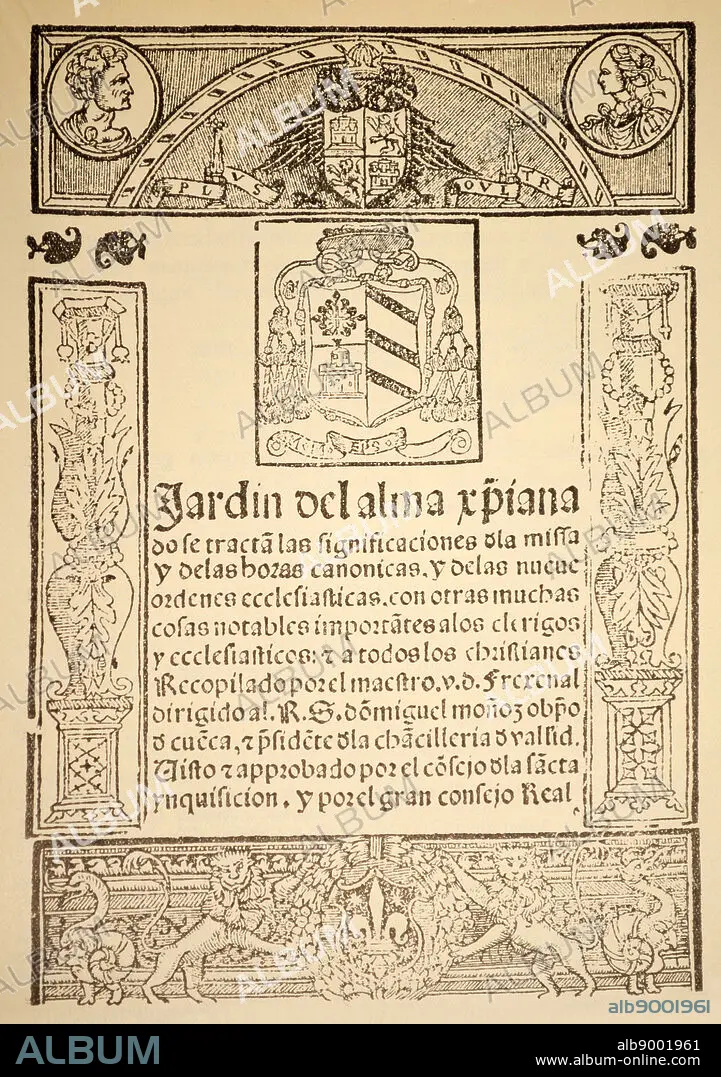 PLVS
OVLTR
Jardin del alma xp̄iana
do se tractā las significaciones dla missa
y delas horas canonicas, y delas nueue
ordenes ecclesiasticas, con otras muchas
cosas notables importātes alos clerigos
y ecclesiasticos: ⁊ a todos los christianos
Recopilado por el maestro. v. d. Frexenal
dirigido al. R. S. dō miguel moñoz obp̄o
d cuēca, ⁊ p̄sidēte dla chācilleria d vallid.
Visto ⁊ approbado por el cōsejo dla sācta
ynquisicion. y por el gran consejo Real
ALBUM
alb9001961
ALBUM
alb9001961
www.album-online.com